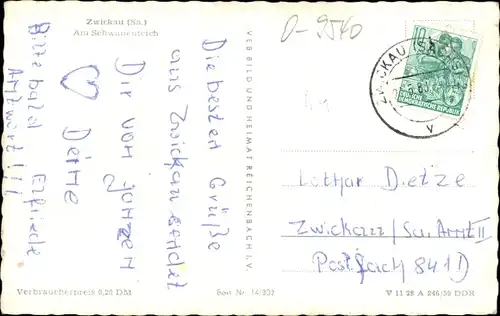 Zwickau (Sa.)
Am Schwanenteich
Die besten Grüße
aus Zwickau sendet
Dir von ganzen
Deine
Elfriede
Bitte bald
Antwort!!!
VEB BILD UND HEIMAT REICHENBACH I. V.
Verbraucherpreis 0,20 DM
Best Nr. 14/202
D-9540
10
DEUTSCHE
DEMOKRATISCHE REPUBLIK
ZWICKAU (SACHS)
V
Lothar Dietze
Zwickau/Sa. Amt II
Postfach 841 D
V 11 28 A 046/59 DDR